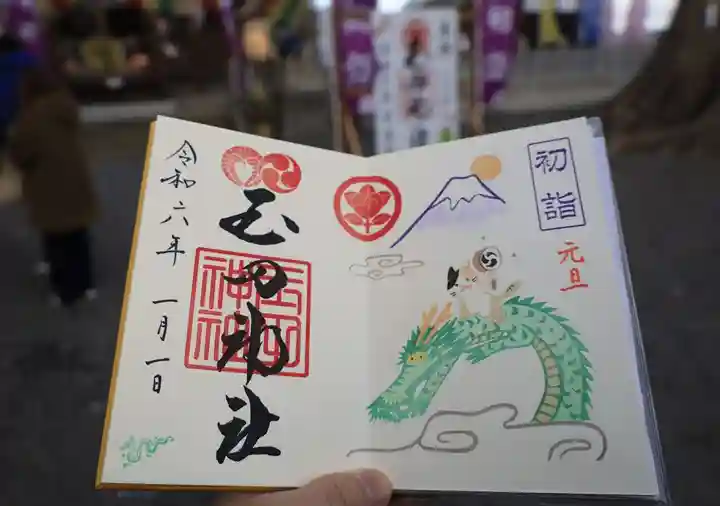 初詣
元旦
玉田神社
令和六年 一月一日